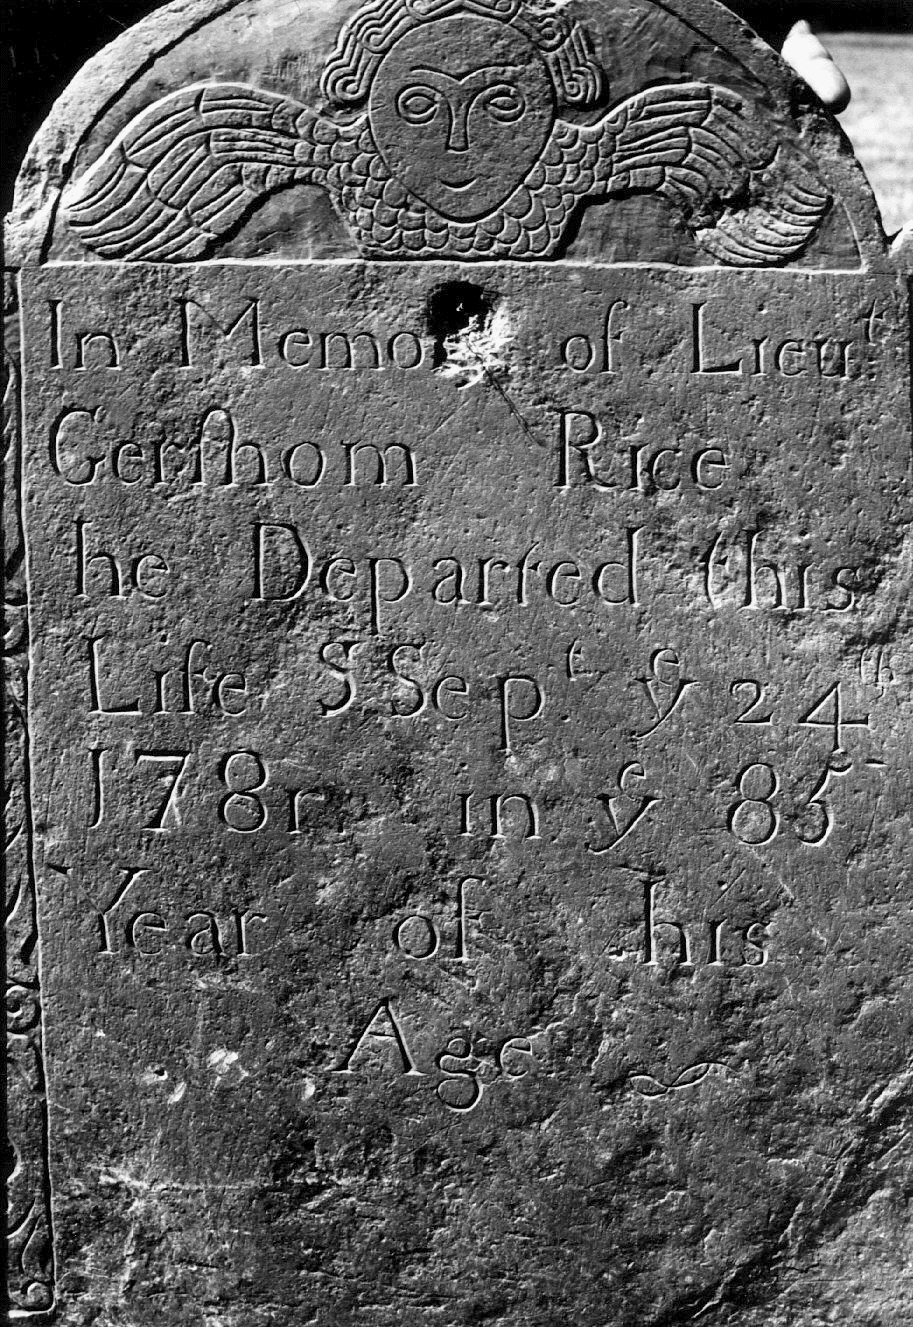 In Memo of Lieuᵗ
Gerſhom Rice
he Departed this
Life SSepᵗ yᵉ 24ᵗʰ
1781 in yᵉ 85-
Year of his
Age